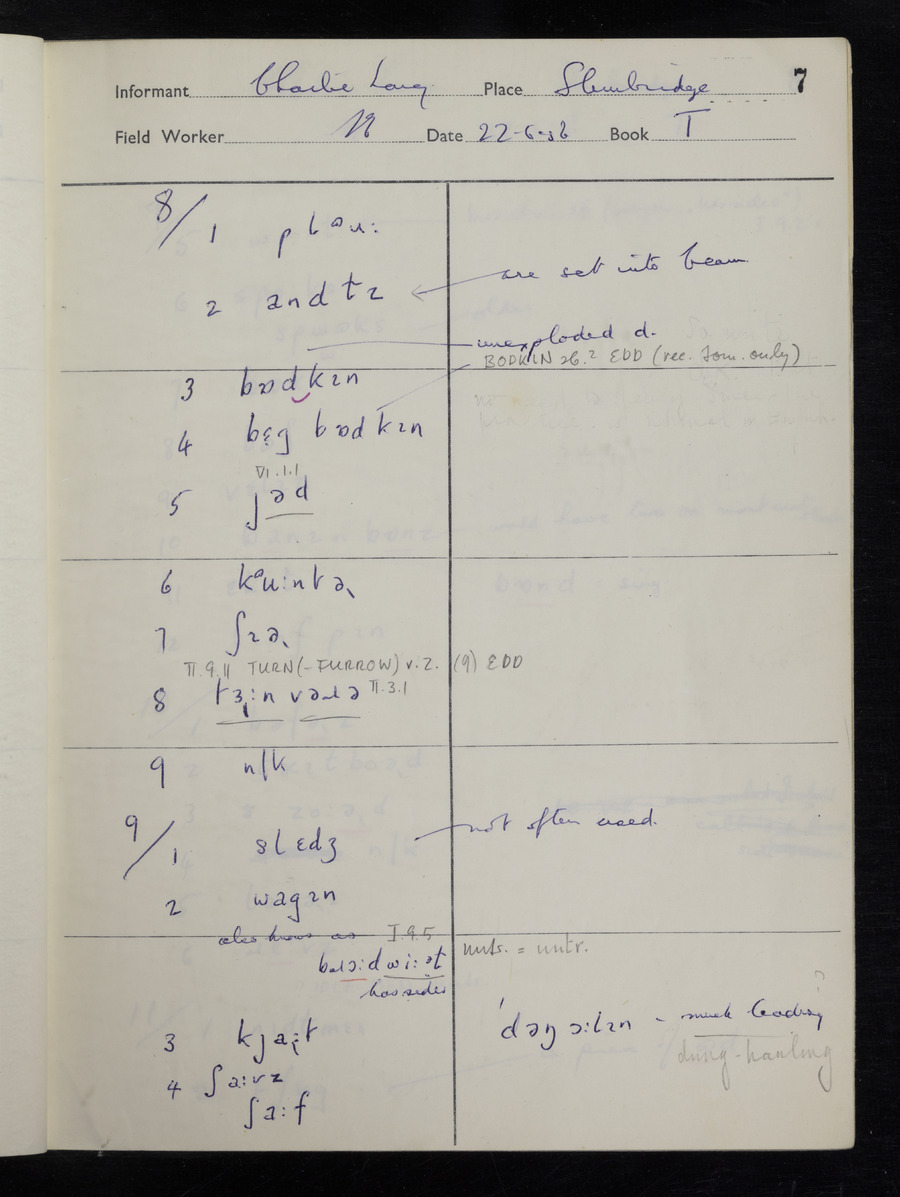 7
Informant Charlie Long Place Stembridge
Field Worker N Date 22-6-56 Book I
8/1 pləu:
2 andɫz
are set into beam
unexploded d.
BODKIN sb.² EDD (rec. Som. only)
3 bɒdkɪn
4 bɛg bɒdkɪn
VI.1.1
5 ʃəd
6 kəu:ntə
7 ʃɪə
II.9.11 TURN(-FURROW) v.2. (9) EDD
8 II.3.1
9 n/k
9/1 slɛdʒ
not often used.
2 wagɪn
also known as I.9.5
has sides
nuts. = untr.
3
4 ʃa:vz
ʃa:f
dung-hauling